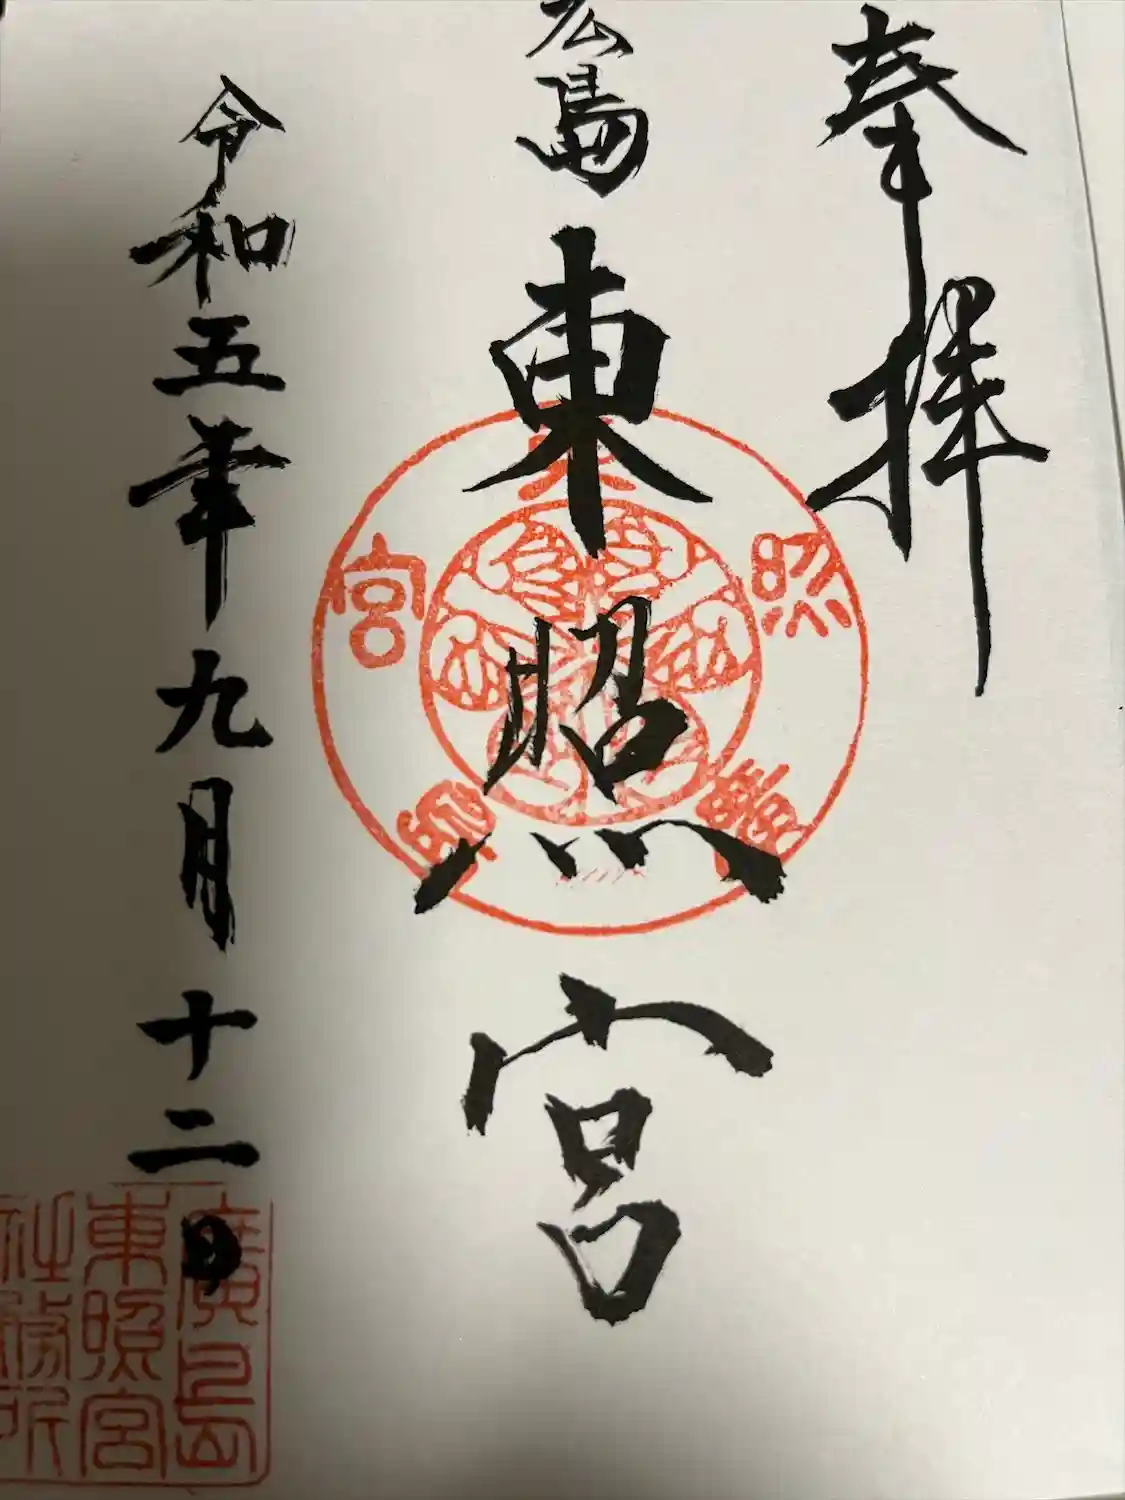 奉拝
広島
東照宮
令和五年九月十二日
東照宮
廣島
東照宮
社務所